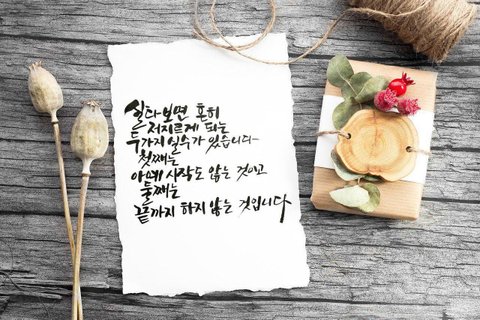 살다보면 흔히
저지르게 되는
두가지 실수가 있습니다
첫째는
아예 시작도 않는 것이고
둘째는
끝까지 하지 않는 것입니다